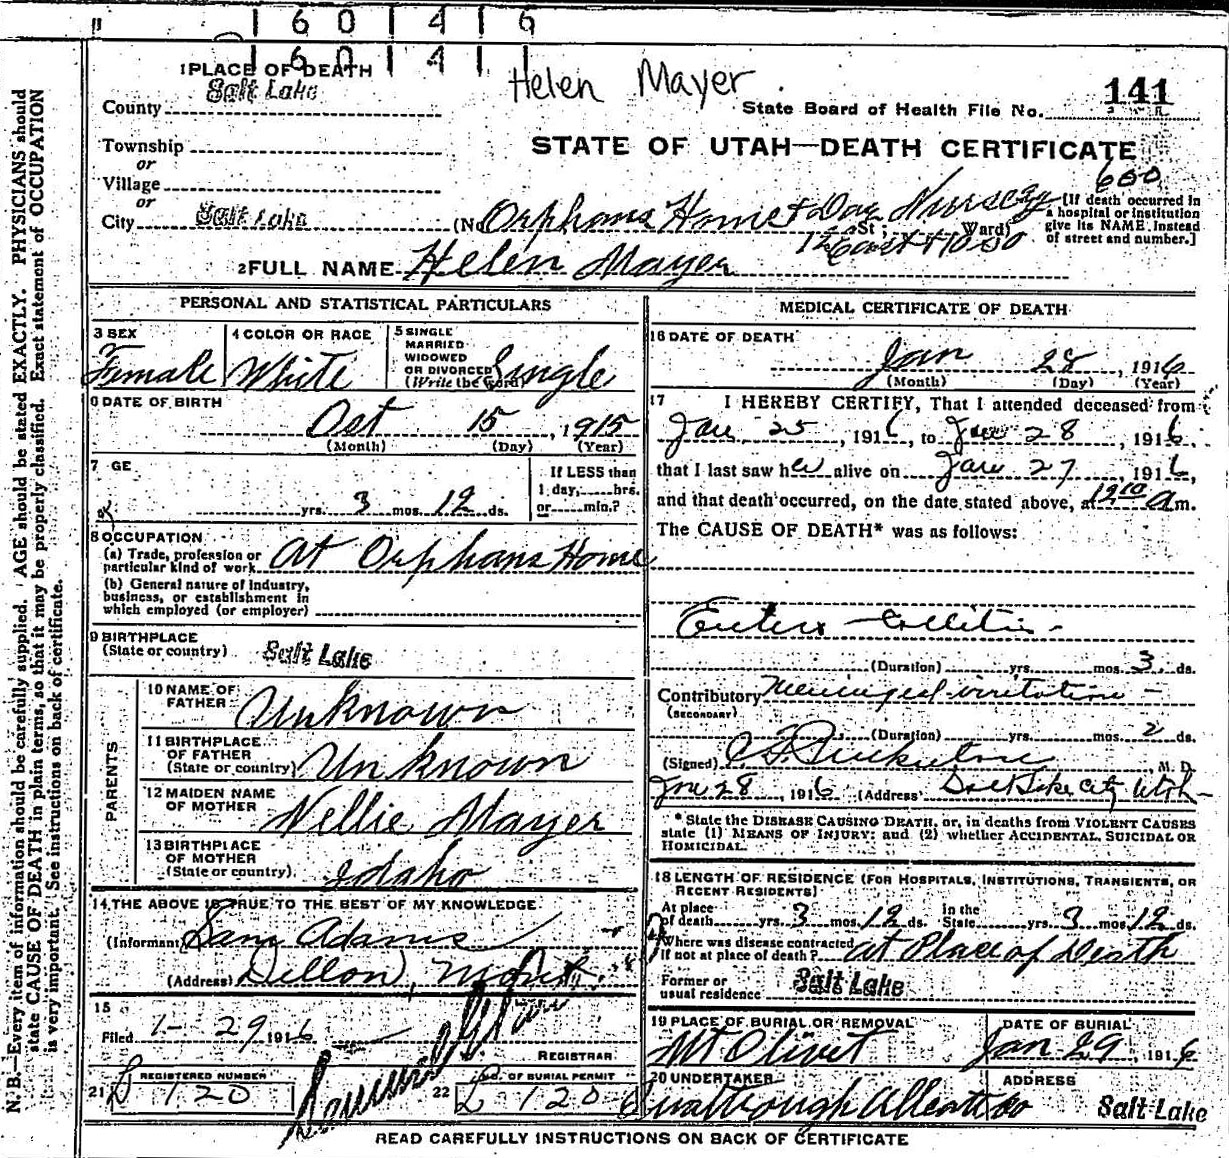 1 6 0 1 4 1 6
1 6 0 1 4 1 1
1 PLACE OF DEATH
Helen Mayer
County Salt Lake
State Board of Health File No. 141
Township
or
Village
or
City Salt Lake
STATE OF UTAH—DEATH CERTIFICATE
600
(No. Orphans Home & Day Nursery St.; Ward)
12 East
[If death occurred in
a hospital or institution
give its NAME instead
of street and number.]
2 FULL NAME Helen Mayer
PERSONAL AND STATISTICAL PARTICULARS
3 SEX
Female
4 COLOR OR RACE
White
5 SINGLE
MARRIED
WIDOWED
OR DIVORCED
(Write the word) Single
6 DATE OF BIRTH
Oct 15, 1915
(Month) (Day) (Year)
7 GE
yrs. 3 mos. 12 ds.
If LESS than
1 day, hrs.
or min.?
8 OCCUPATION
(a) Trade, profession or
particular kind of work At Orphans Home
(b) General nature of industry,
business, or establishment in
which employed (or employer)
9 BIRTHPLACE
(State or country) Salt Lake
PARENTS
10 NAME OF
FATHER Unknown
11 BIRTHPLACE
OF FATHER
(State or country) Unknown
12 MAIDEN NAME
OF MOTHER Nellie Mayer
13 BIRTHPLACE
OF MOTHER
(State or country) Idaho
14 THE ABOVE IS TRUE TO THE BEST OF MY KNOWLEDGE
(Informant) Sam Adams
(Address) Dillon, Mont.
15
Filed 1-29 1916
REGISTRAR
21 REGISTERED NUMBER
D 120
22 NO. OF BURIAL PERMIT
D 120
MEDICAL CERTIFICATE OF DEATH
16 DATE OF DEATH
Jan 28, 1916
(Month) (Day) (Year)
17 I HEREBY CERTIFY, That I attended deceased from
Jan 25, 1916, to Jan 28, 1916,
that I last saw her alive on Jan 27 1916,
and that death occurred, on the date stated above, at 12 10 A m.
The CAUSE OF DEATH* was as follows:
Entero-Collitis-
(Duration) yrs. mos. 3 ds.
Contributory Meningeal irritation -
(SECONDARY)
(Duration) yrs. mos. 2 ds.
(Signed) M. D.
Jan 28, 1916 (Address) Salt Lake City Utah-
* State the DISEASE CAUSING DEATH, or, in deaths from VIOLENT CAUSES
state (1) MEANS OF INJURY; and (2) whether ACCIDENTAL, SUICIDAL OR
HOMICIDAL.
18 LENGTH OF RESIDENCE (FOR HOSPITALS, INSTITUTIONS, TRANSIENTS, OR
RECENT RESIDENTS)
At place
of death yrs. 3 mos. 12 ds. In the
State yrs. 3 mos. 12 ds.
Where was disease contracted
if not at place of death? at Place of Death
Former or
usual residence Salt Lake
19 PLACE OF BURIAL OR REMOVAL
Mt Olivet
DATE OF BURIAL
Jan 29, 1916
20 UNDERTAKER
ADDRESS
Salt Lake
READ CAREFULLY INSTRUCTIONS ON BACK OF CERTIFICATE
N. B.—Every item of information should be carefully supplied. AGE should be stated EXACTLY. PHYSICIANS should
state CAUSE OF DEATH in plain terms, so that it may be properly classified. Exact statement of OCCUPATION
is very important. See instructions on back of certificate.